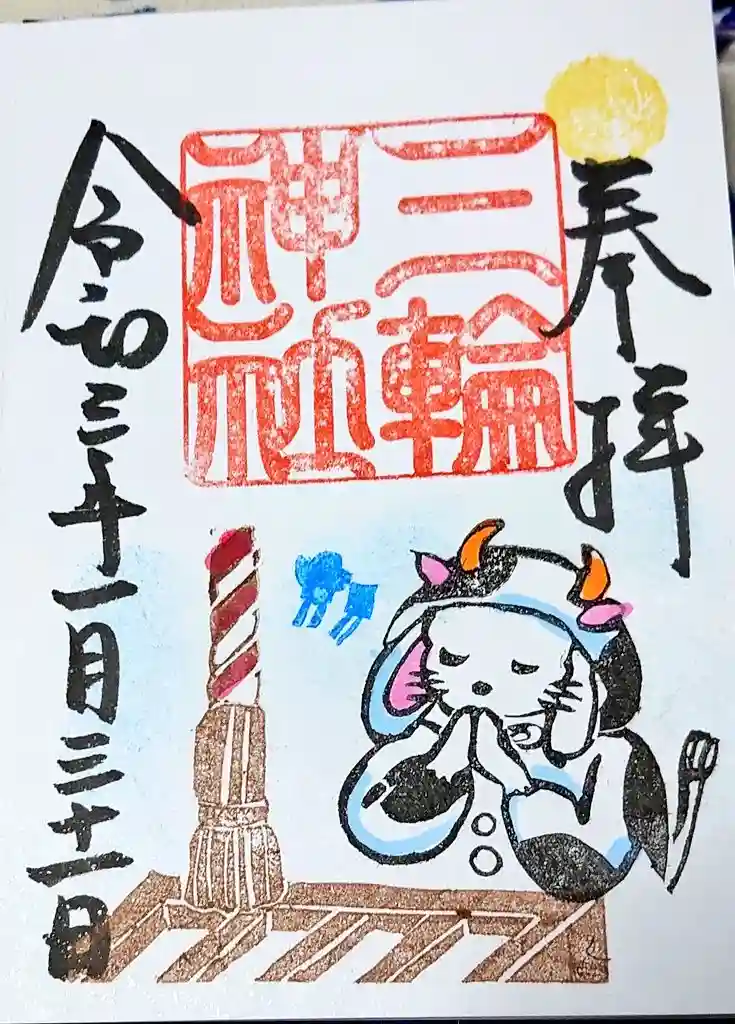 奉拝
三輪
神社
令和三年一月三十一日